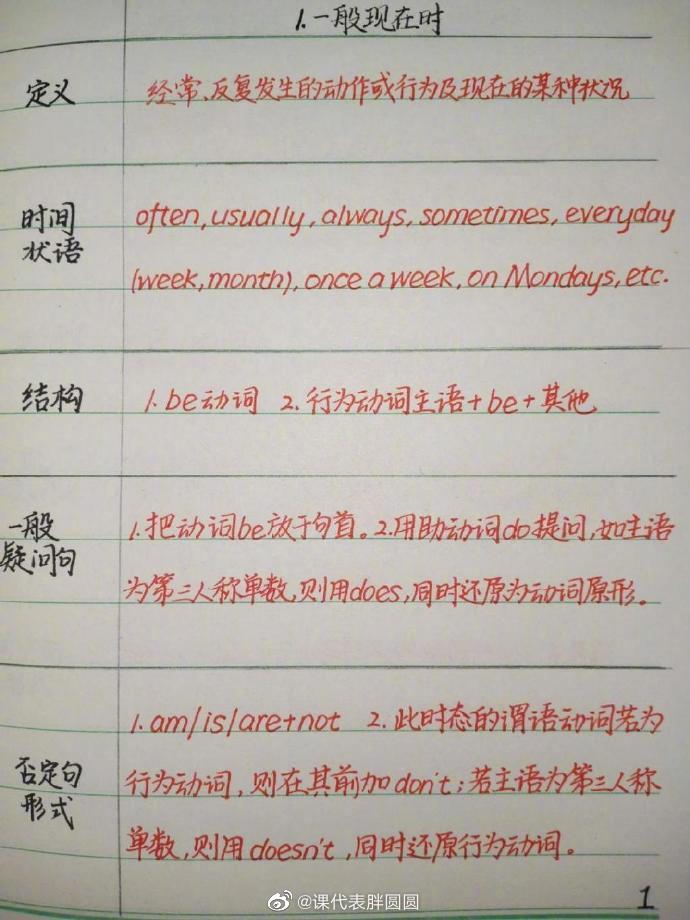 1.一般现在时
定义
经常、反复发生的动作或行为及现在的某种状况
时间
状语
often, usually, always, sometimes, everyday
(week, month), once a week, on Mondays, etc.
结构
1. be动词 2. 行为动词主语+be+其他
一般
疑问句
1.把动词be放于句首。2.用助动词do提问,如主语
为第三人称单数,则用does,同时还原为动词原形。
否定句
形式
1. am/is/are+not 2. 此时态的谓语动词若为
行为动词,则在其前加don't;若主语为第三人称
单数,则用doesn't,同时还原行为动词。
1
@课代表胖圆圆